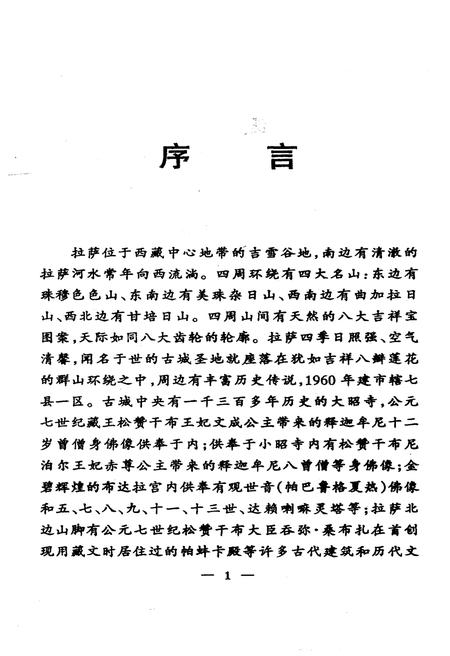 序 言
拉萨位于西藏中心地带的吉雪谷地,南边有清澈的
拉萨河水常年向西流淌。四周环绕有四大名山:东边有
珠穆色色山、东南边有美珠杂日山、西南边有曲加拉日
山、西北边有甘培日山。四周山间有天然的八大吉祥宝
图案,天际如同八大齿轮的轮廓。拉萨四季日照强、空气
清馨,闻名于世的古城圣地就座落在犹如吉祥八瓣莲花
的群山环绕之中,周边有丰富历史传说,1960年建市辖七
县一区。古城中央有一千三百多年历史的大昭寺,公元
七世纪藏王松赞干布王妃文成公主带来的释迦牟尼十二
岁曾僧身佛像供奉于内;供奉于小昭寺内有松赞干布尼
泊尔王妃赤尊公主带来的释迦牟尼八曾僧等身佛像;金
碧辉煌的布达拉宫内供奉有观世音(帕巴鲁格夏热)佛像
和五、七、八、九、十一、十三世、达赖喇嘛灵塔等;拉萨北
边山脚有公元七世纪松赞干布大臣吞弥·桑布扎在首创
现用藏文时居住过的帕蚌卡殿等许多古代建筑和历代文
— 1 —